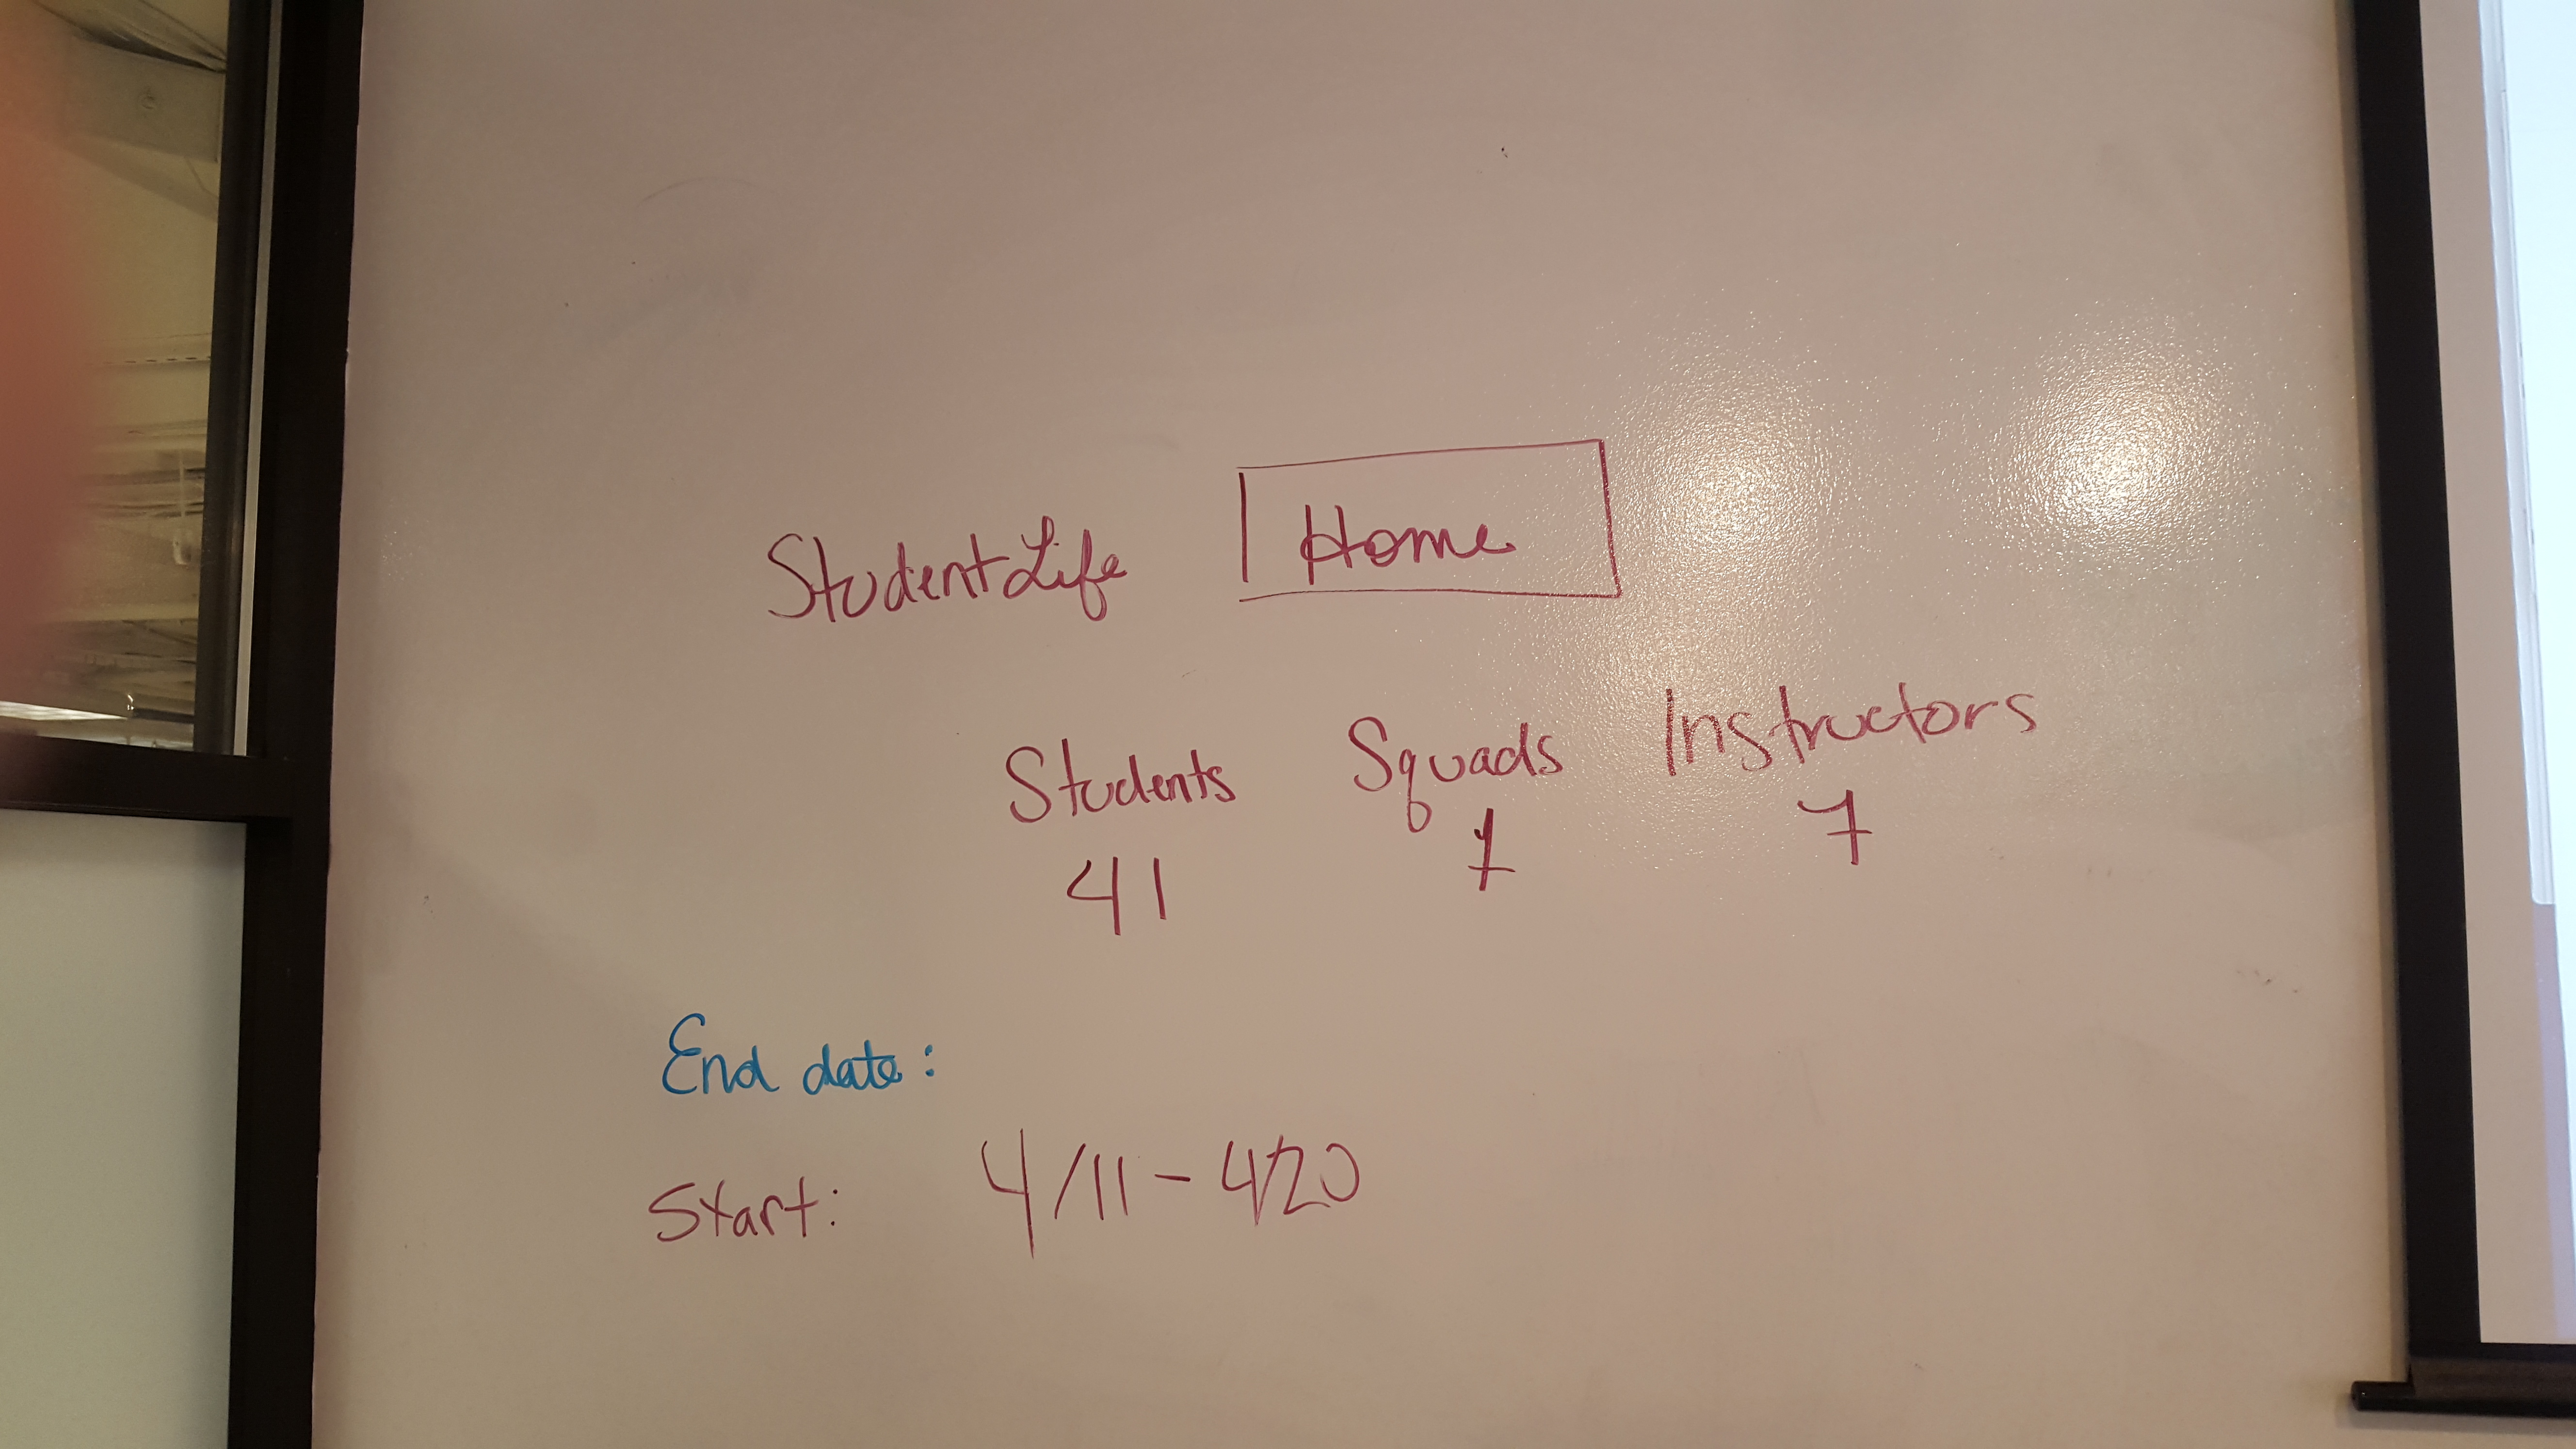 StudentLife Home
Students Squads Instructors
41 7 7
End date:
Start: 4/11 - 4/20